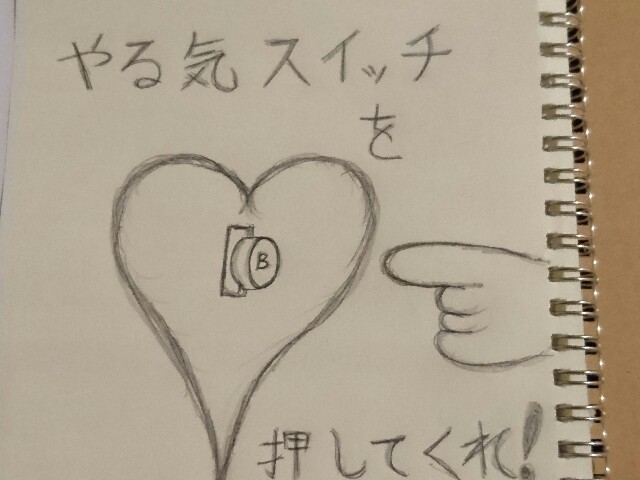 やる気スイッチ
を
B
押してくれ!